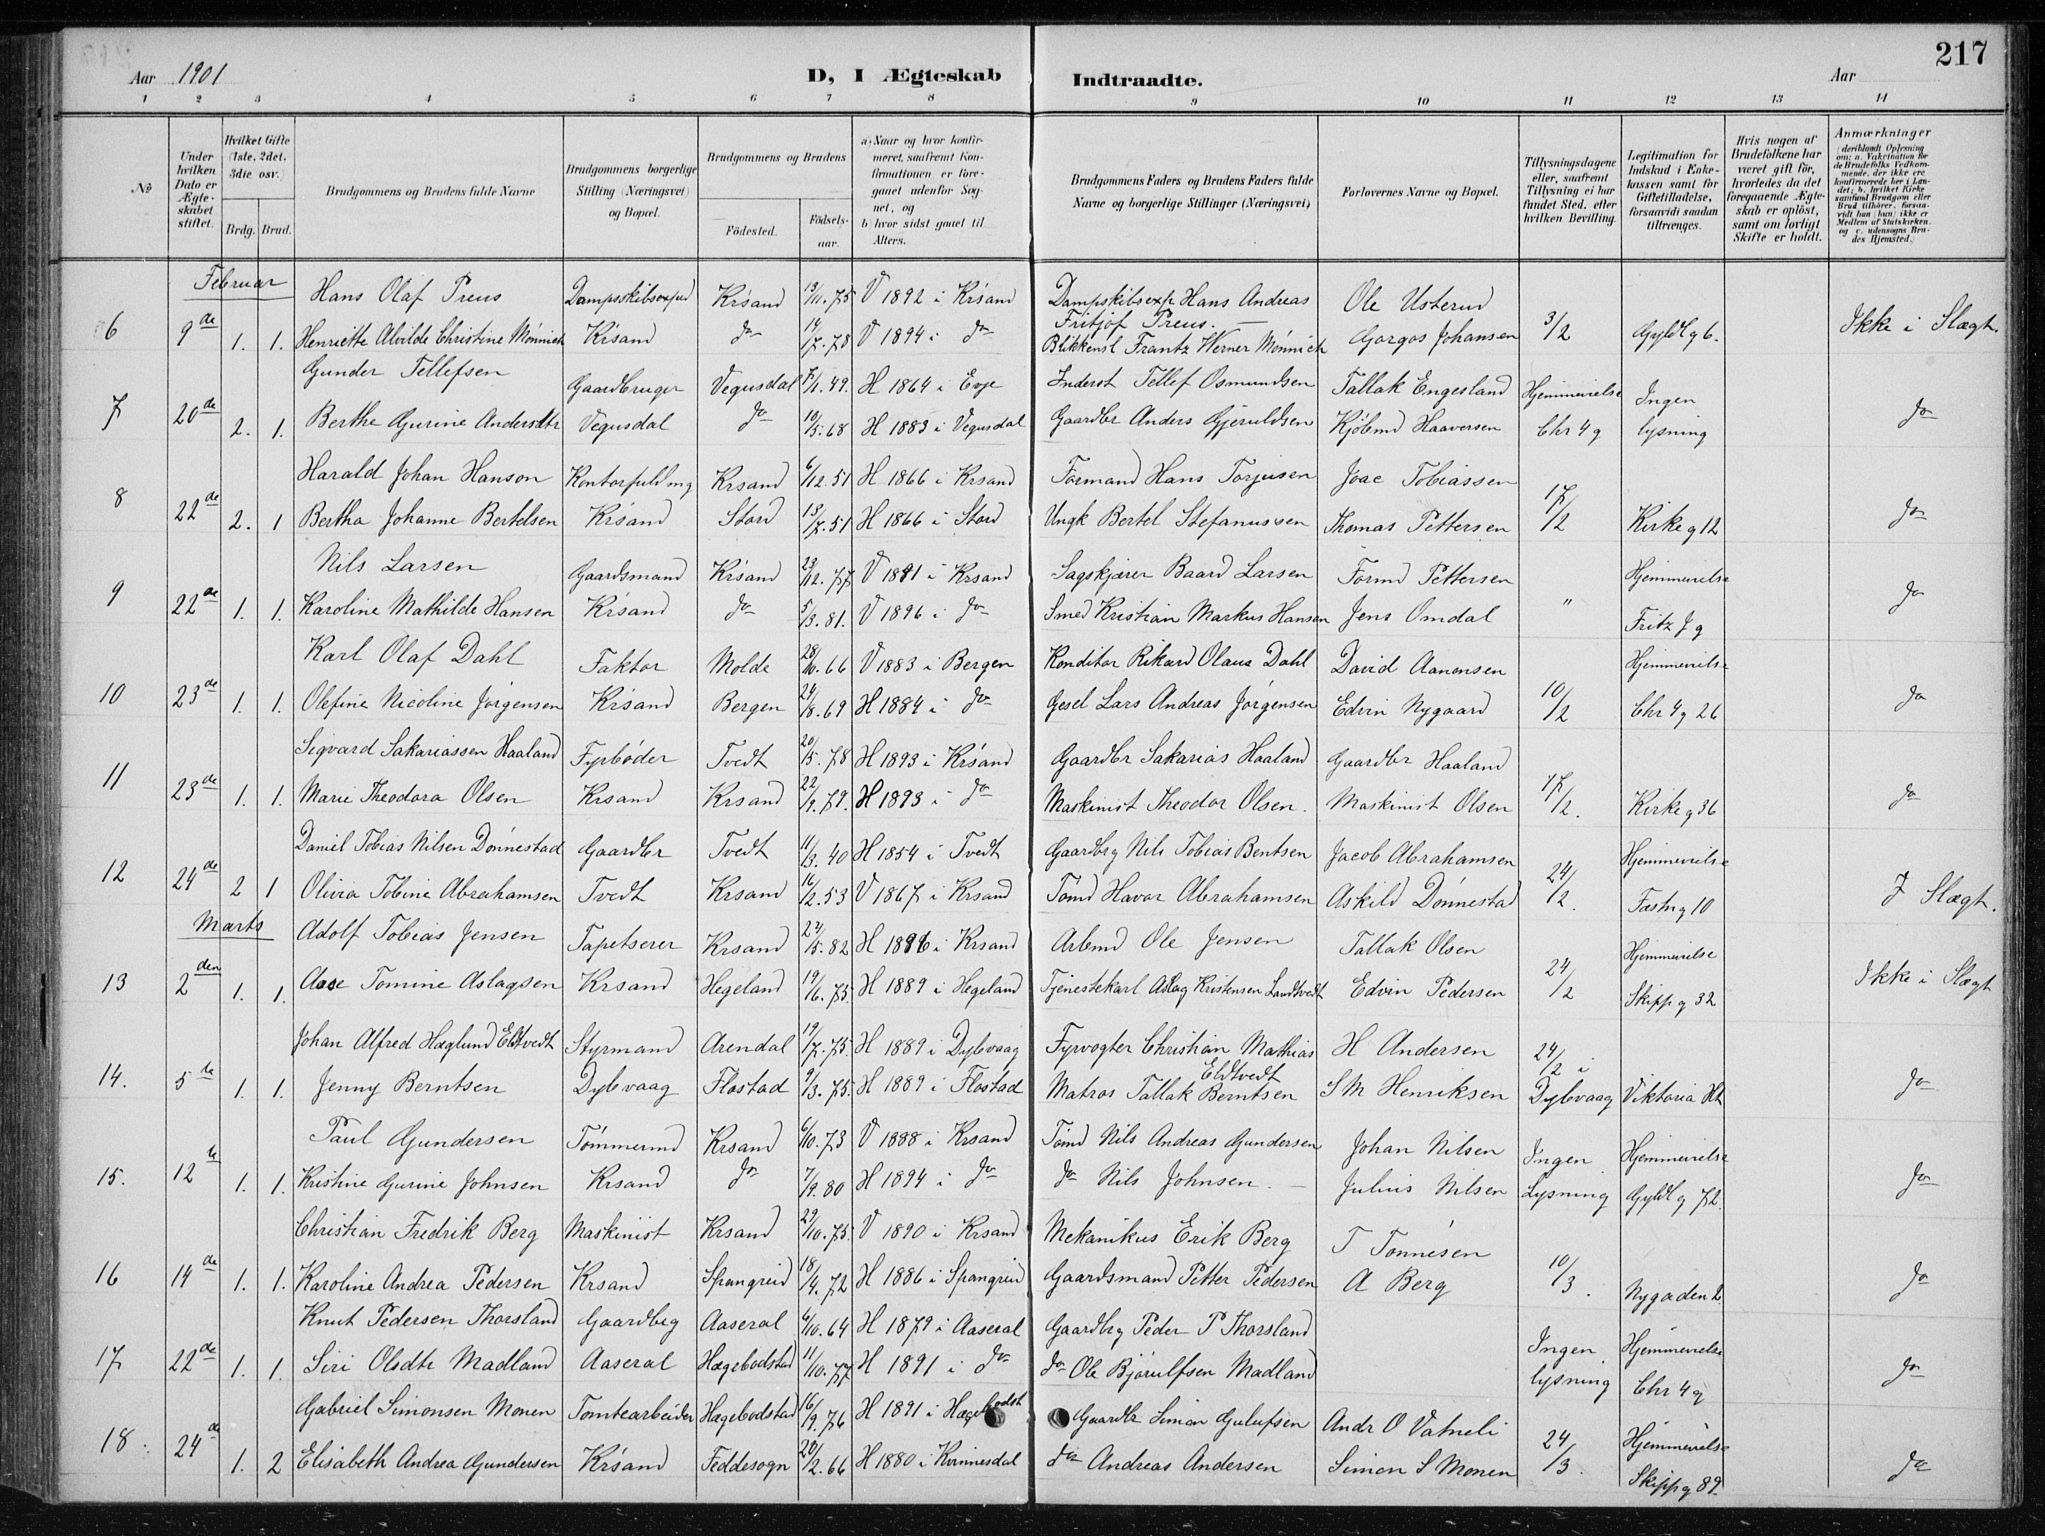 217
Aar 1901 D, I Ægteskab Indtraadte. Aar
1 2 3 4 5 6 7 8 9 10 11 12 13 14
No
Under hvilken Dato er Ægteskabet stiftet.
Hvilket Gifte (1ste, 2det, 3die osv.)
Brdg. Brud.
Brudgommens og Brudens fulde Navne
Brudgommens borgerlige Stilling (Næringsvei) og Bopæl.
Brudgommens og Brudens
Födested. Födsels-aar.
a) Naar og hvor konfirmeret, saafremt Konfirmationen er foregaaet udenfor Sognet, og
b) hvor sidst gaaet til Alters.
Brudgommens Faders og Brudens Faders fulde Navne og borgerlige Stillinger (Næringsvei)
Forlovernes Navne og Bopæl.
Tillysningsdagene eller, saafremt Tillysning ei har fundet Sted, efter hvilken Bevilling.
Legitimation for Indskud i Enkekassen samt for Giftetilladelse, forsaavidt saadan tiltrænges.
Hvis nogen af Brudefolkene har været gift för, hvorledes da det foregaaende Ægteskab er oplöst, samt om lovligt Skifte er holdt.
Anmærkninger (deriblandt Oplysning om: a. Vakcination for de Brudefolks Vedkommende, der ikke ere konfirmerede her i Landet; b. hvilket Kirkesamfund Brudgom eller Brud tilhörer, forsaavidt han (hun) ikke er Medlem af Statskirken, og c. udensogns Brudes Hjemsted.)
Februar
Hans Olaf Preus Dampskibsexped Krsand 13/11.75 V 1892 i Krsand Dampskibsexp Hans Andreas Fritjof Preus. Ole Usterud
6 9de 1. 1. Henriette Alvilde Christine Mönnich Krsand do 14/7.78 V 1894 i do Blikkensl Frantz Werner Mönnich Gorgos Johansen 3/2 Gyldl g 6. Ikke i Slægt.
Gunder Tellefsen Gaardbruger Vegusdal 7/1.49. H 1864 i Evje Inderst Tellef Osmundsen Tallak Engesland Hjemmevielse Ingen
7 20de 2. 1. Berthe Gurine Andersdtr Vegusdal do 10/5.68 H 1883 i Vegusdal Gaardbr Anders Gjeruldsen Kjöbmd Haaversen Chr 4 g lysning do
Harald Johan Hanson Kontorfuldmg Krsand 6/12.51 H 1866 i Krsand Formand Hans Torjusen Joac Tobiassen
8 22de 2. 1 Bertha Johanne Bertelsen Krsand Stord 13/7.51 H 1866 i Stord Ungk Bertel Stefanussen Thomas Pettersen 17/2 Kirke g 12 do
Nils Larsen Gaardsmand Krsand 23/12.77 V 1891 i Krsand Sagskjærer Baard Larsen Formd Pettersen Hjemmevielse
9 22de 1. 1. Karoline Mathilde Hansen Krsand do 5/3.81. V 1896 i do Smed Kristian Markus Hansen Jens Omdal " Fritz J g do
Karl Olaf Dahl Faktor Molde 28/10.66 V 1883 i Bergen Konditor Rikard Olaus Dahl David Aanensen Hjemmevielse
10 23de 1. 1. Olefine Nicoline Jörgensen Krsand Bergen 24/8.69 H 1884 i do Gesel Lars Andreas Jörgensen Edvin Nygaard 10/2 Chr 4 g 26 do
Sigvard Sakariassen Haaland Fyrböder Tvedt 20/5.78 H 1893 i Krsand Gaardbr Sakarias Haaland Gaardbr Haaland
11 23de 1. 1. Marie Theodora Olsen Krsand Krsand 22/9.79. H 1893 i do Maskinist Theodor Olsen. Maskinist Olsen 17/2. Kirke g 36 do
Daniel Tobias Nilsen Dönnestad Gaardbr Tvedt 11/3.40 H 1854 i Tvedt Gaardbrg Nils Tobias Bentsen Jacob Abrahamsen Hjemmevielse
12 24de 2 1 Olivia Tobine Abrahamsen Tvedt Krsand 16/2.53 V 1867 i Krsand Tömd Havor Abrahamsen Askild Dönnestad 24/2. Fæstn g 10 I Slægt.
Marts
Adolf Tobias Jensen Tapetserer Krsand 22/5.82 H 1896 i Krsand Arbmd Ole Jensen Tallak Olsen Hjemmevielse
13 2den 1. 1. Aase Tomine Aslagsen Krsand Hegeland 19/6.75 H 1889 i Hegeland Tjenestekarl Aslag Kristensen Landtvedt Edvin Pedersen 24/2 Skipp g 32 Ikke i Slægt
Johan Alfred Hæglund Eldtvedt Styrmand Arendal 19/7.75. H 1889 i Dybvaag Fyrvogter Christian Mathias Eldtvedt H Andersen
14. 5te 1. 1. Jenny Berntsen Dybvaag Flostad 9/3.75. H 1889 i Flostad Matros Tallak Berntsen S M Henriksen 24/2 i Dybvaag Viktoria Ht do
Paul Gundersen Tömmermd Krsand 6/10.73 V 1888 i Krsand Tömd Nils Andreas Gundersen Johan Nilsen Ingen Hjemmevielse
15. 12te 1. 1. Kristine Gurine Johnsen Krsand do 7/9.80 H 1894 i do do Nils Johnsen. Julius Nilsen Lysning Gyldl g 72. do
Christian Fredrik Berg Maskinist Krsand 29/10.75. V 1890 i Krsand Mekanikus Erik Berg T Tönnesen
16 14de 1. 1. Karoline Andrea Pedersen Krsand Spangreid 18/4.72 H 1886 i Spangreid Gaardsmand Petter Pedersen A Berg 10/3. Nygaden 2. do
Knut Pedersen Thorsland Gaardbrg Aaseral 6/10.64 H 1879 i Aaseral Gaardbrg Peder P Thorsland Ingen Hjemmevielse
17 22de 1. 1. Siri Olsdtr Madland Aaseral Hægebostad 11/10.77 H 1891 i do do Ole Björulfsen Madland lysning Chr 4 g do
Gabriel Simonsen Monen Tomtearbeider Hægebostad 16/9.76 H 1891 i Hægebostd Gaardbr Simon Gulufsen Andr O Vatneli Hjemmevielse
18. 24de 1. 2 Elisabeth Andrea Gundersen Krsand Feddesogn 20/2.66 H 1880 i Kvinnesdal do Andreas Andersen Simon S Monen 24/3. Skipp g 89. do